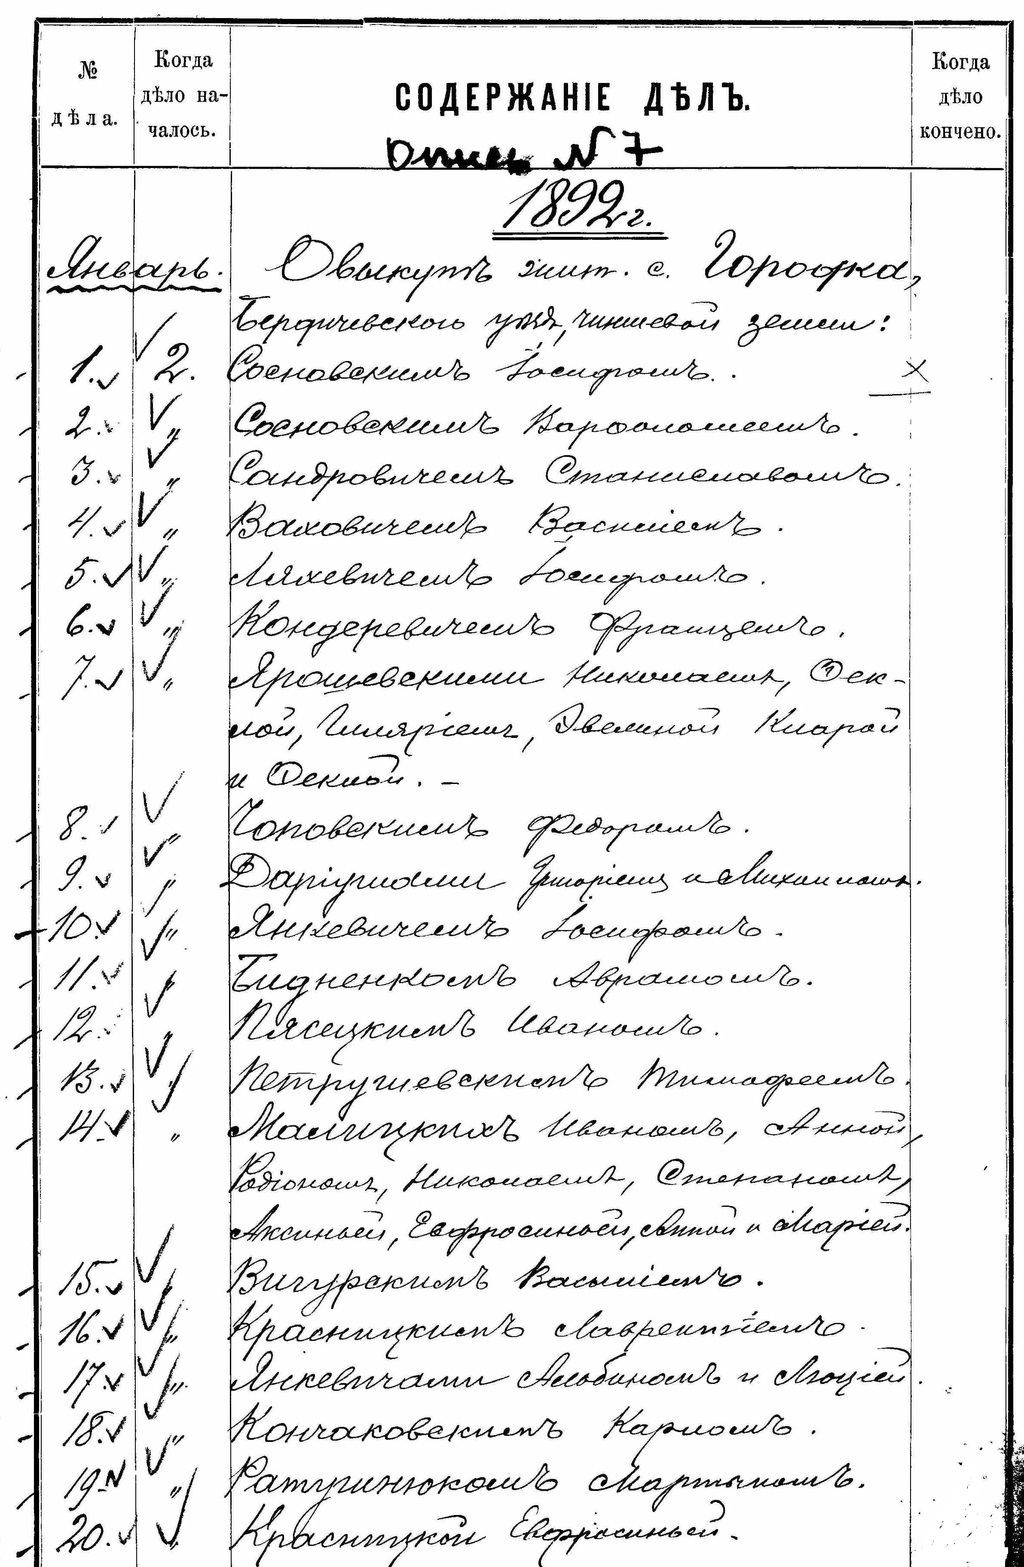 № дѣла.
Когда дѣло началось.
СОДЕРЖАНІЕ ДѢЛЪ.
Когда дѣло кончено.
Опись N 7
1892 г.
Январь. О выкупѣ жит. с. Городка,
Бердичевскаго уѣзд., чиншевой земли:
1. 2. Сосновскимъ Іосифомъ. х
2. " Сосновскимъ Варфоломеемъ.
3. " Сандровичемъ Станиславомъ.
4. " Ваховичемъ Василіемъ.
5. " Ляхевичемъ Іосифомъ.
6. " Кондеревичемъ Францемъ.
7. " Ярошевскими Николаемъ, Ѳек-
лой, Гиляріемъ, Эвелиной Кларой
и Ѳеклой. –
8. " Чоповскимъ Федоромъ.
9. " Григоріемъ и Михаиломъ.
10. " Янкевичемъ Іосифомъ.
11. " Бидненкомъ Аврамомъ.
12. " Пясецкимъ Иваномъ.
13. " Петрушевскимъ Тимофеемъ.
14. " Малицкихъ Иваномъ, Анной,
Родіономъ, Николаемъ, Степаномъ,
Аксиньей, Евфросиньей, Анной и Маріей.
15. " Вигурскимъ Василіемъ.
16. " Красницкимъ Лаврентіемъ.
17. " Янкевичами Альбиномъ и Люціей.
18. " Кончаковскимъ Карломъ.
19. " Мартыномъ.
20. " Красницкой Евфросиньей.